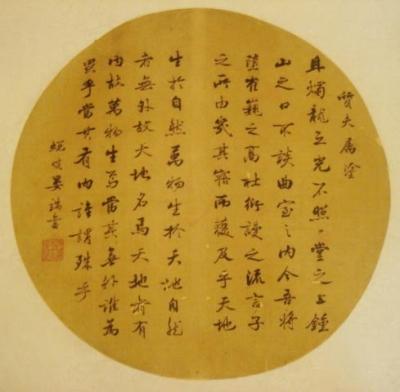 賢夫屬塗
且燭龍之光不照一堂之上鐘
山之口不談曲室之內今吾將
墮崔巍之高杜衍謾之流言子
之所由幾其寤而獲及乎天地
生於自然萬物生於天地自然
者無外故天地名焉天地者有
內故萬物生焉當其無外誰為
異乎當其有內誰謂殊乎
晏端書